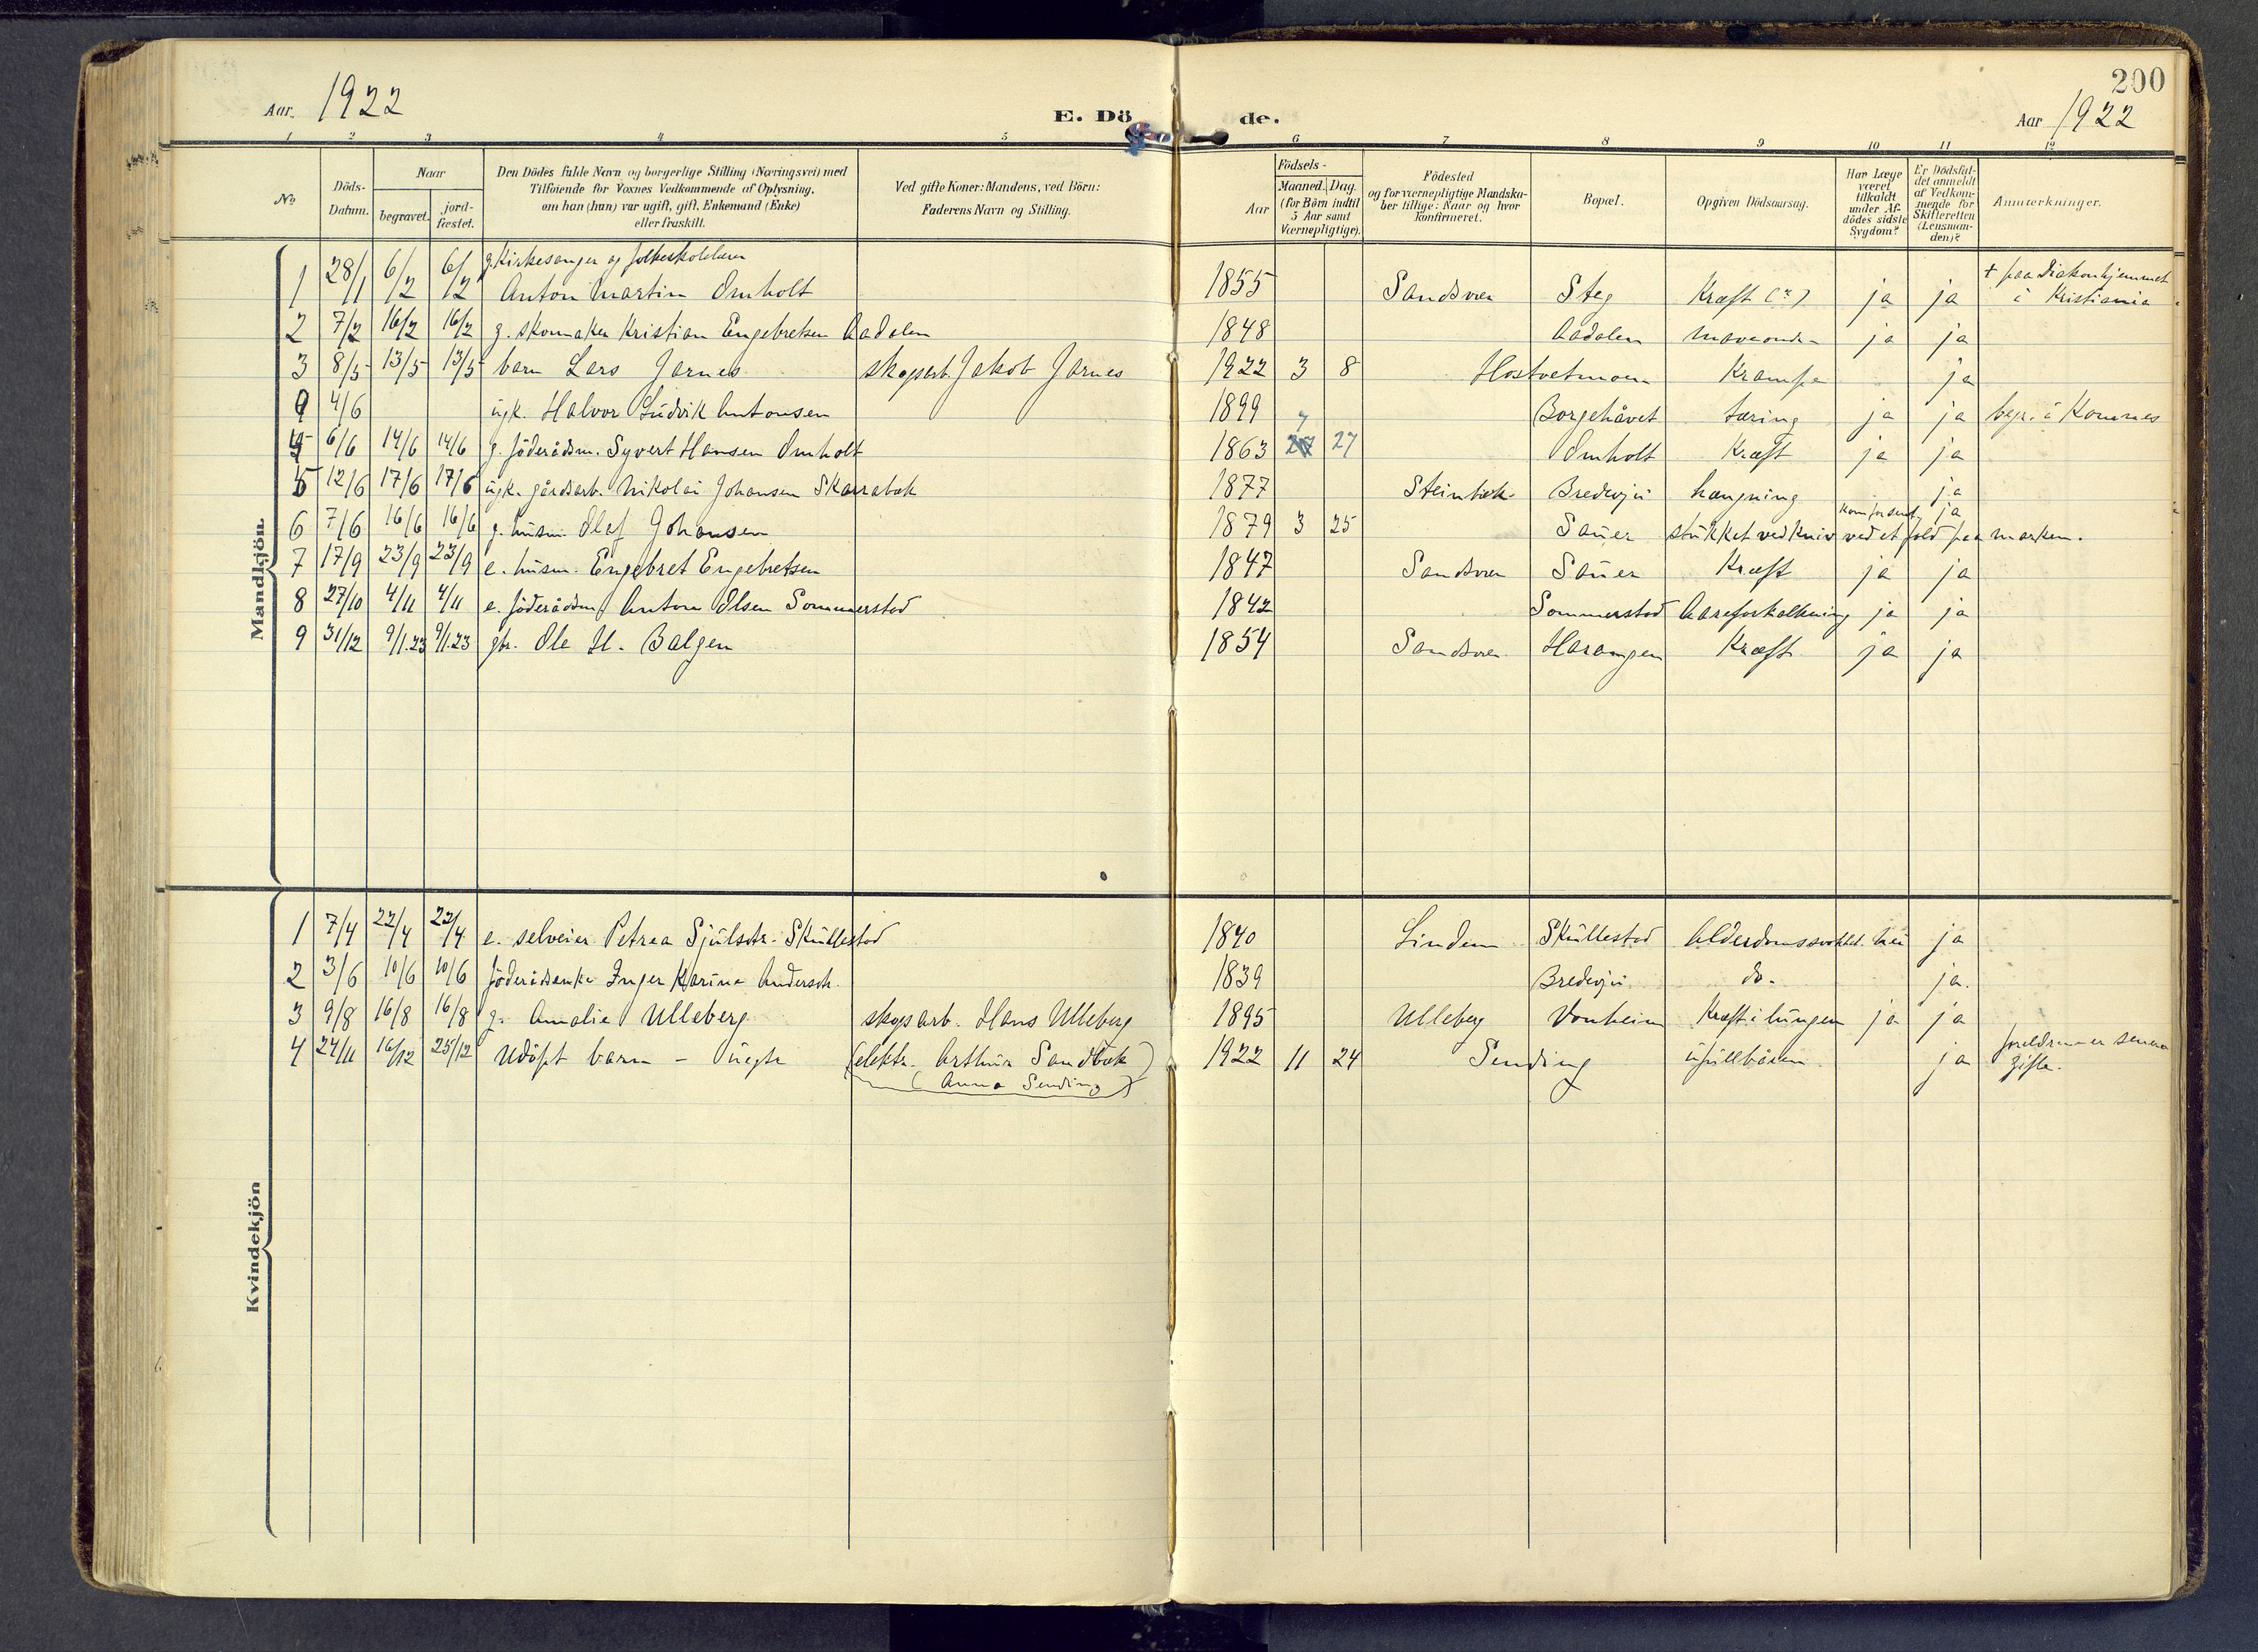 200
Aar. 1922
E. Dö de.
Aar 1922
1 2 3 4 5 6 7 8 9 10 11 12
No
Döds-Datum.
Naar
begravet.
jord-fæstet.
Den Dödes fulde Navn og borgerlige Stilling (Næringsvei) med
Tilföiende for Voxnes Vedkommende af Oplysning,
om han (hun) var ugift, gift, Enkemand (Enke)
eller fraskilt.
Ved gifte Koner: Mandens, ved Börn:
Faderens Navn og Stilling.
Födsels-
Aar
Maaned. Dag.
(for Börn indtil
5 Aar samt
Værnepligtige).
Födested
og for værnepligtige Mandska-
ber tillige: Naar og hvor
konfirmeret.
Bopæl.
Opgiven Dödsaarsag.
Har Læge
været
tilkaldt
under Af-
dödes sidste
Sygdom?
Er Dödsfal-
det anmeldt
af Vedkom-
mende for
Skifteretten
(Lensman-
den)?
Anmærkninger.
Mandkjön.
g. Kirkesanger og folkeskolelærer
1 28/1 6/2 6/2 Anton Martin Omholt 1855 Sandsvær Steg Kræft (?) ja ja † paa Diakonhjemmet
i Kristiania
2 7/2 16/2 16/2 g. skomaker Kristian Engebretsen Aadalen 1848 Aadalen maveonde ja ja
3 8/5 13/5 13/5 barn Lars Jarnes skogsarb. Jakob Jarnes 1922 3 8 Hostvetmoen Krampe ja
4/6 ugk. Halvor Ludvik Antonsen 1899 Borgehåvet tæring ja ja begr. i Komnes
4 6/6 14/6 14/6 g. föderådsm. Syvert Hansen Omholt 1863 7 27 Omholt Kræft ja ja
5 12/6 17/6 17/6 ugk. gårdsarb. Nikolai Johansen Skarrabæk 1877 Steinbæk Bredvju hængning ja
6 7/6 16/6 16/6 g. husm. Olaf Johansen 1879 3 25 Sauer stukket ved kniv ved et fald paa marken. kom for sent ja
7 17/9 23/9 23/9 e. husm. Engebret Engebretsen 1847 Sandsvær Sauer Kræft ja ja
8 27/10 4/11 4/11 e. föderådsm. Anton Olsen Sommerstad 1842 Sommerstad Aareforkalkning ja ja
9 31/12 9/1.23 9/1.23 gbr. Ole H. Balgen 1854 Sandsvær Harangen Kræft ja ja
Kvindekjön
1 7/4 22/4 22/4 e. selveier Petrea Sjulsdtr. Skullestad 1840 Lindem Skullestad Alderdomssvakhet. nei ja
2 3/6 10/6 10/6 föderådsenke Inger Karine Andersdtr. 1839 Bredvju do. ja.
3 9/8 16/8 16/8 g. Amalie Ulleberg skogsarb. Hans Ulleberg 1895 Ulleberg Vonheim Kræft i lungen ja ja
4 24/11 16/12 25/12 Udöpt barn - uegte (elektr. Arthur Sandbæk) 1922 11 24 Sending ufuldbåren ja foreldrene er senere
gifte.
(Anna Sending)